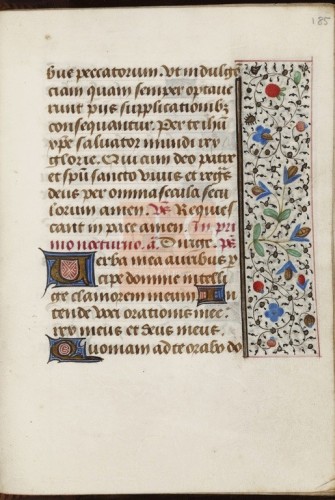 185
bus peccatorum. Ut indulgen
ciam quam semper optaue
runt pijs supplicationibz
consequantur. Per te ihu
xpe saluator mundi rex
glorie. Qui cum deo patre
et spu sancto viuis et regs
deus per omnia secula secu
lorum amen. Requies
cant in pace amen. In pri
mo nocturno. a. Dirige. ps
Verba mea auribus p
cipe domine intelli
ge clamorem meum In
tende voci orationis mee:
rex meus et deus meus.
Quoniam ad te orabo do